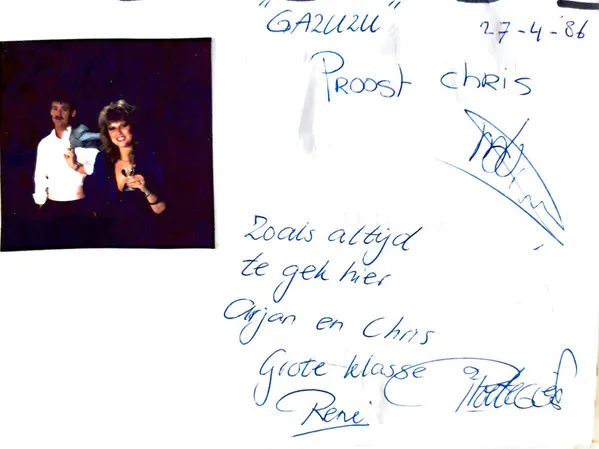 "GAZUZU"
27-4-'86
Proost Chris
Zoals altijd
te gek hier
Arjan en Chris
Grote klasse
René